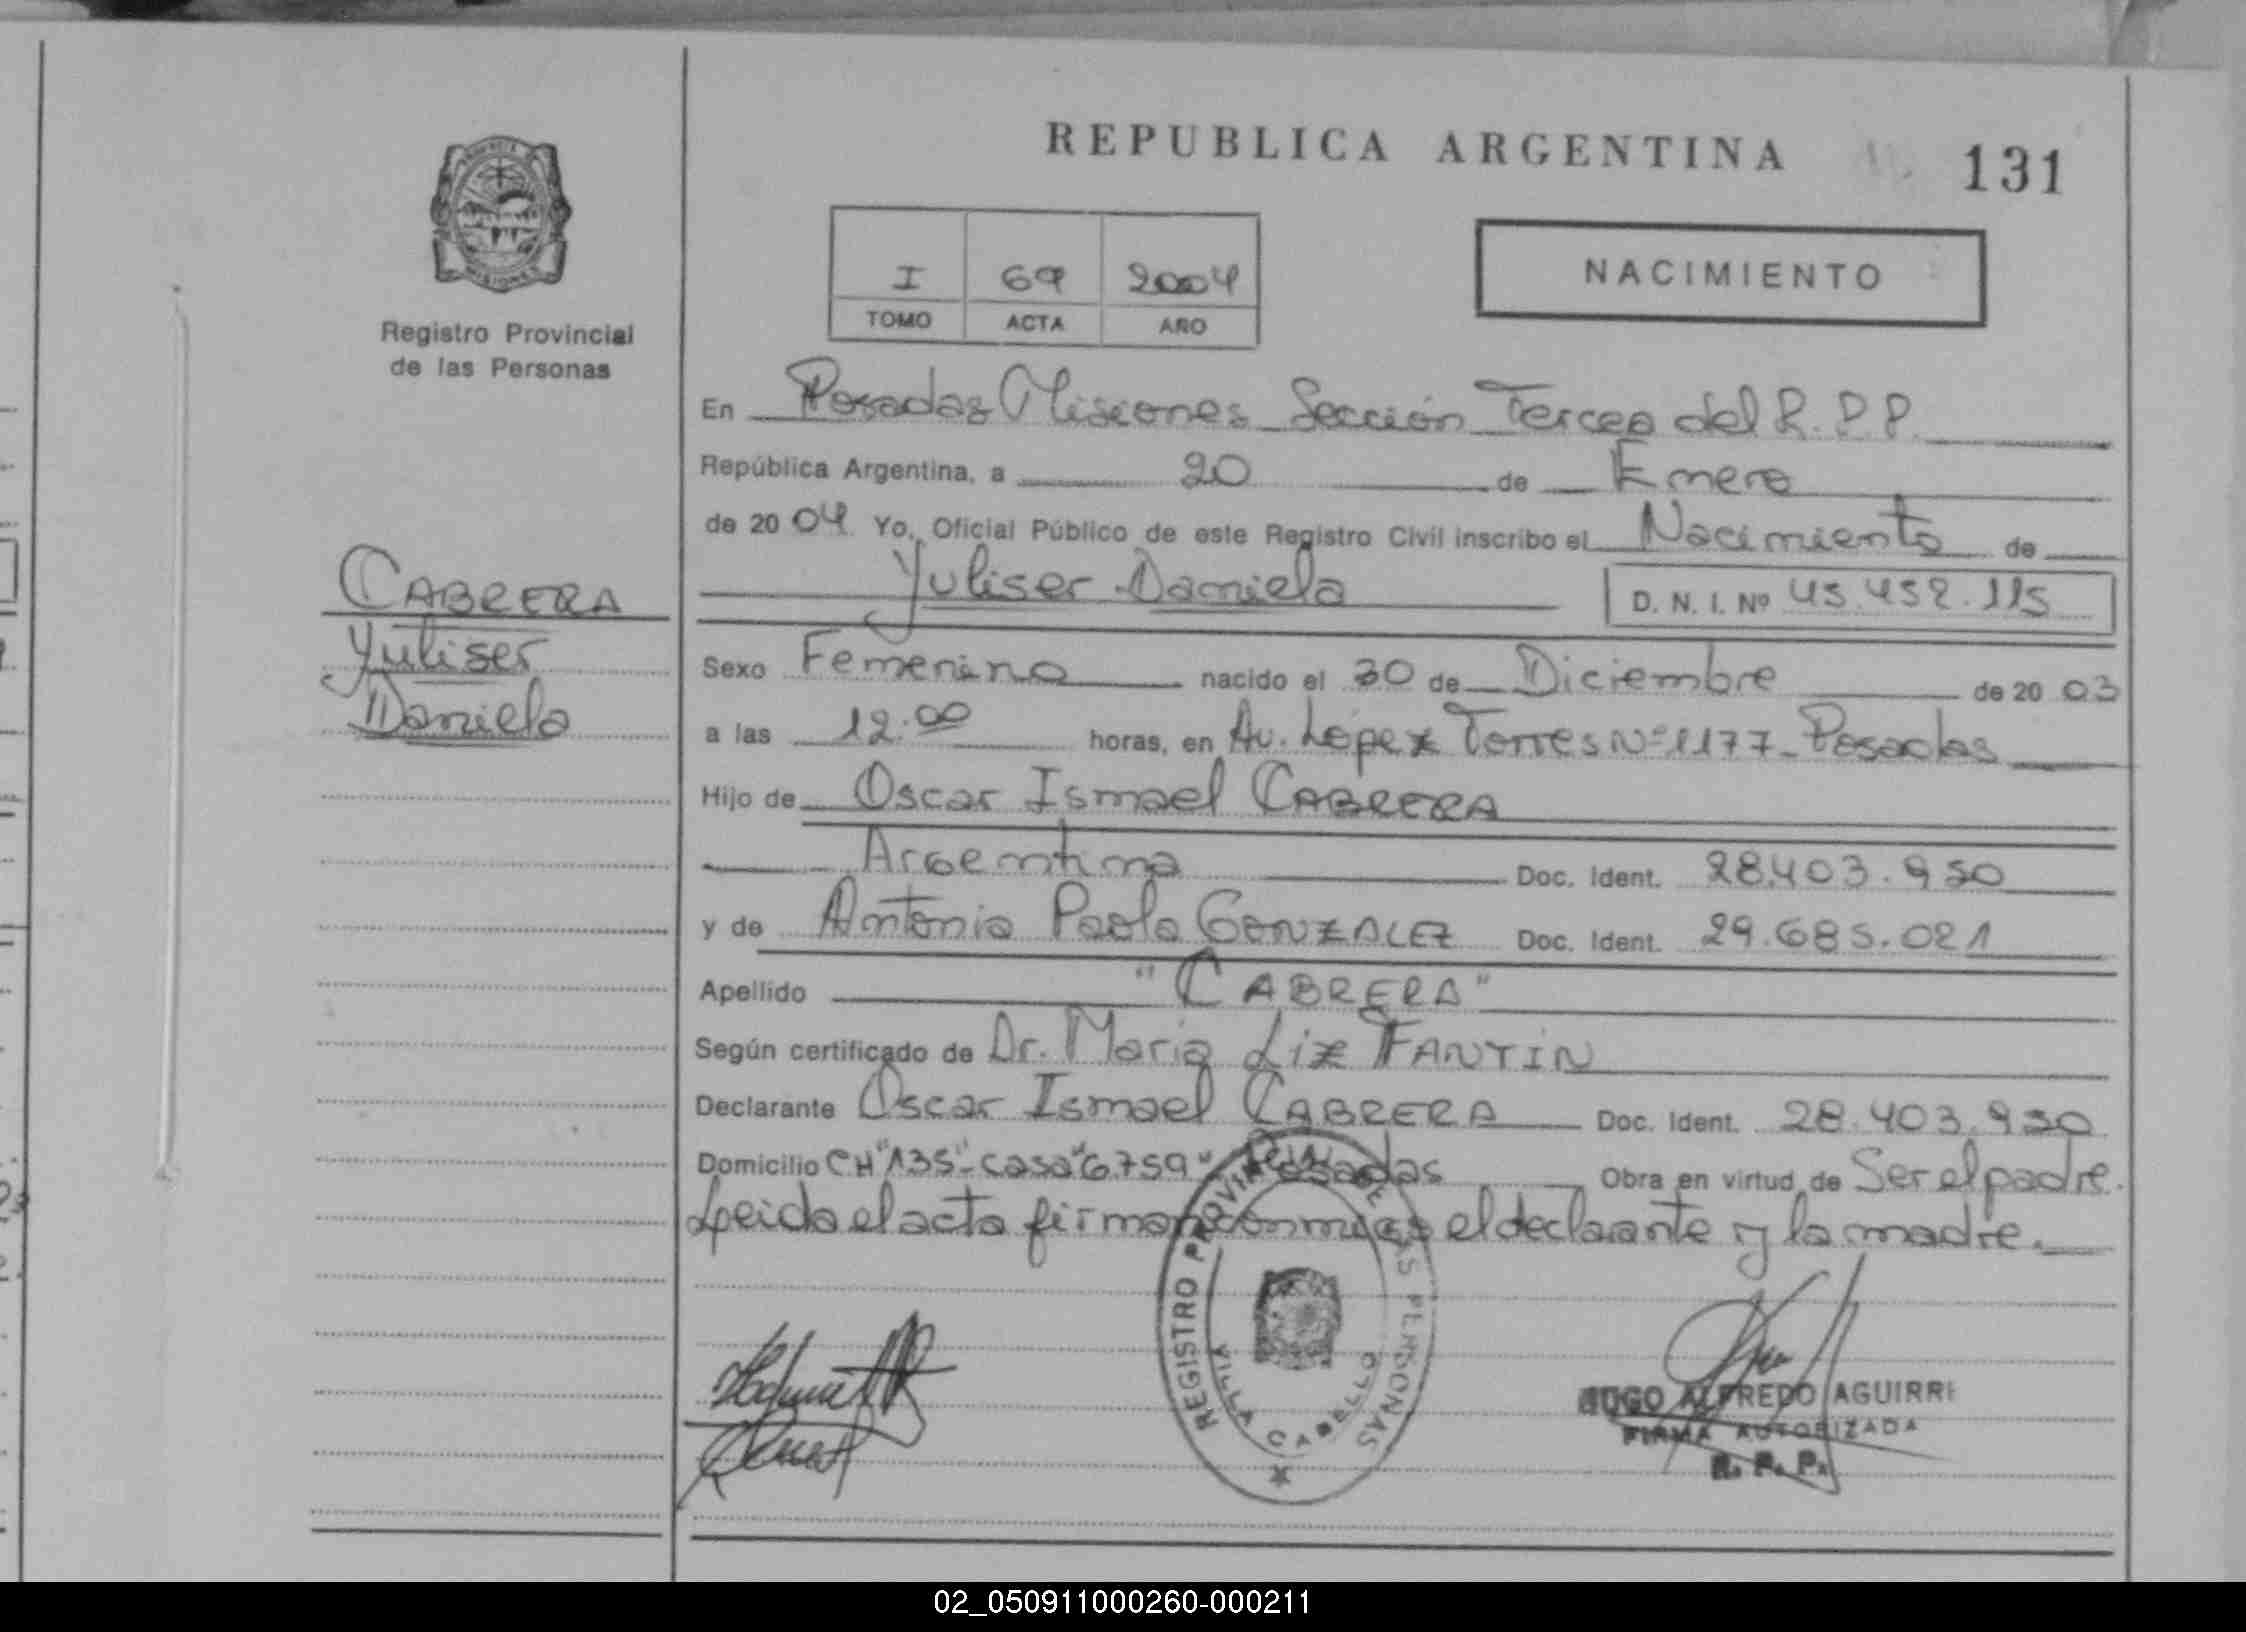 REPUBLICA ARGENTINA
131
PROVINCIA
MISIONES
Registro Provincial
de las Personas
I 69 2004
TOMO ACTA AÑO
NACIMIENTO
En Posadas Misiones Sección Tercea del R.P.P.
República Argentina, a 20 de Enero
de 2004 Yo, Oficial Público de este Registro Civil inscribo el Nacimiento de
Yuliser Daniela D. N. I. Nº 45.452.115
CABRERA
Yuliser
Daniela
Sexo Femenino nacido el 30 de Diciembre de 2003
a las 12.00 horas, en Av. López Torres Nº 1177 - Posadas
Hijo de Oscar Ismael CABRERA
Argentina Doc. Ident. 28.403.950
y de Antonia Paola GONZALEZ Doc. Ident. 29.685.021
Apellido "CABRERA"
Según certificado de Dr. Maria Liz FANTIN
Declarante Oscar Ismael CABRERA Doc. Ident. 28.403.950
Domicilio CH "135" - casa "6759" - Posadas Obra en virtud de Ser el padre.
Leida el acta firman conmigo el declarante y la madre.
REGISTRO PROVINCIAL DE LAS PERSONAS
VILLA CABELLO
HUGO ALFREDO AGUIRRE
FIRMA AUTORIZADA
R. P. P.
02_050911000260-000211